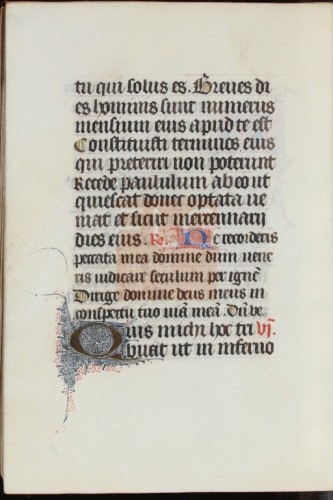 tu qui solus es. Breues di
es hominis sunt numerus
mensium eius apud te est
Constituisti terminos eius
qui preteriri non poterunt
Recede paululum ab eo ut
quiescat donec optata ve
niat et sicut mercennarij
dies eius. R. Ne recorderis
peccata mea domine dum vene
ris iudicare seculum per ignē
Dirige domine deus meus in
conspectu tuo viā meā. Dū ve.
Quis michi hoc tri vi.
buat ut in inferno